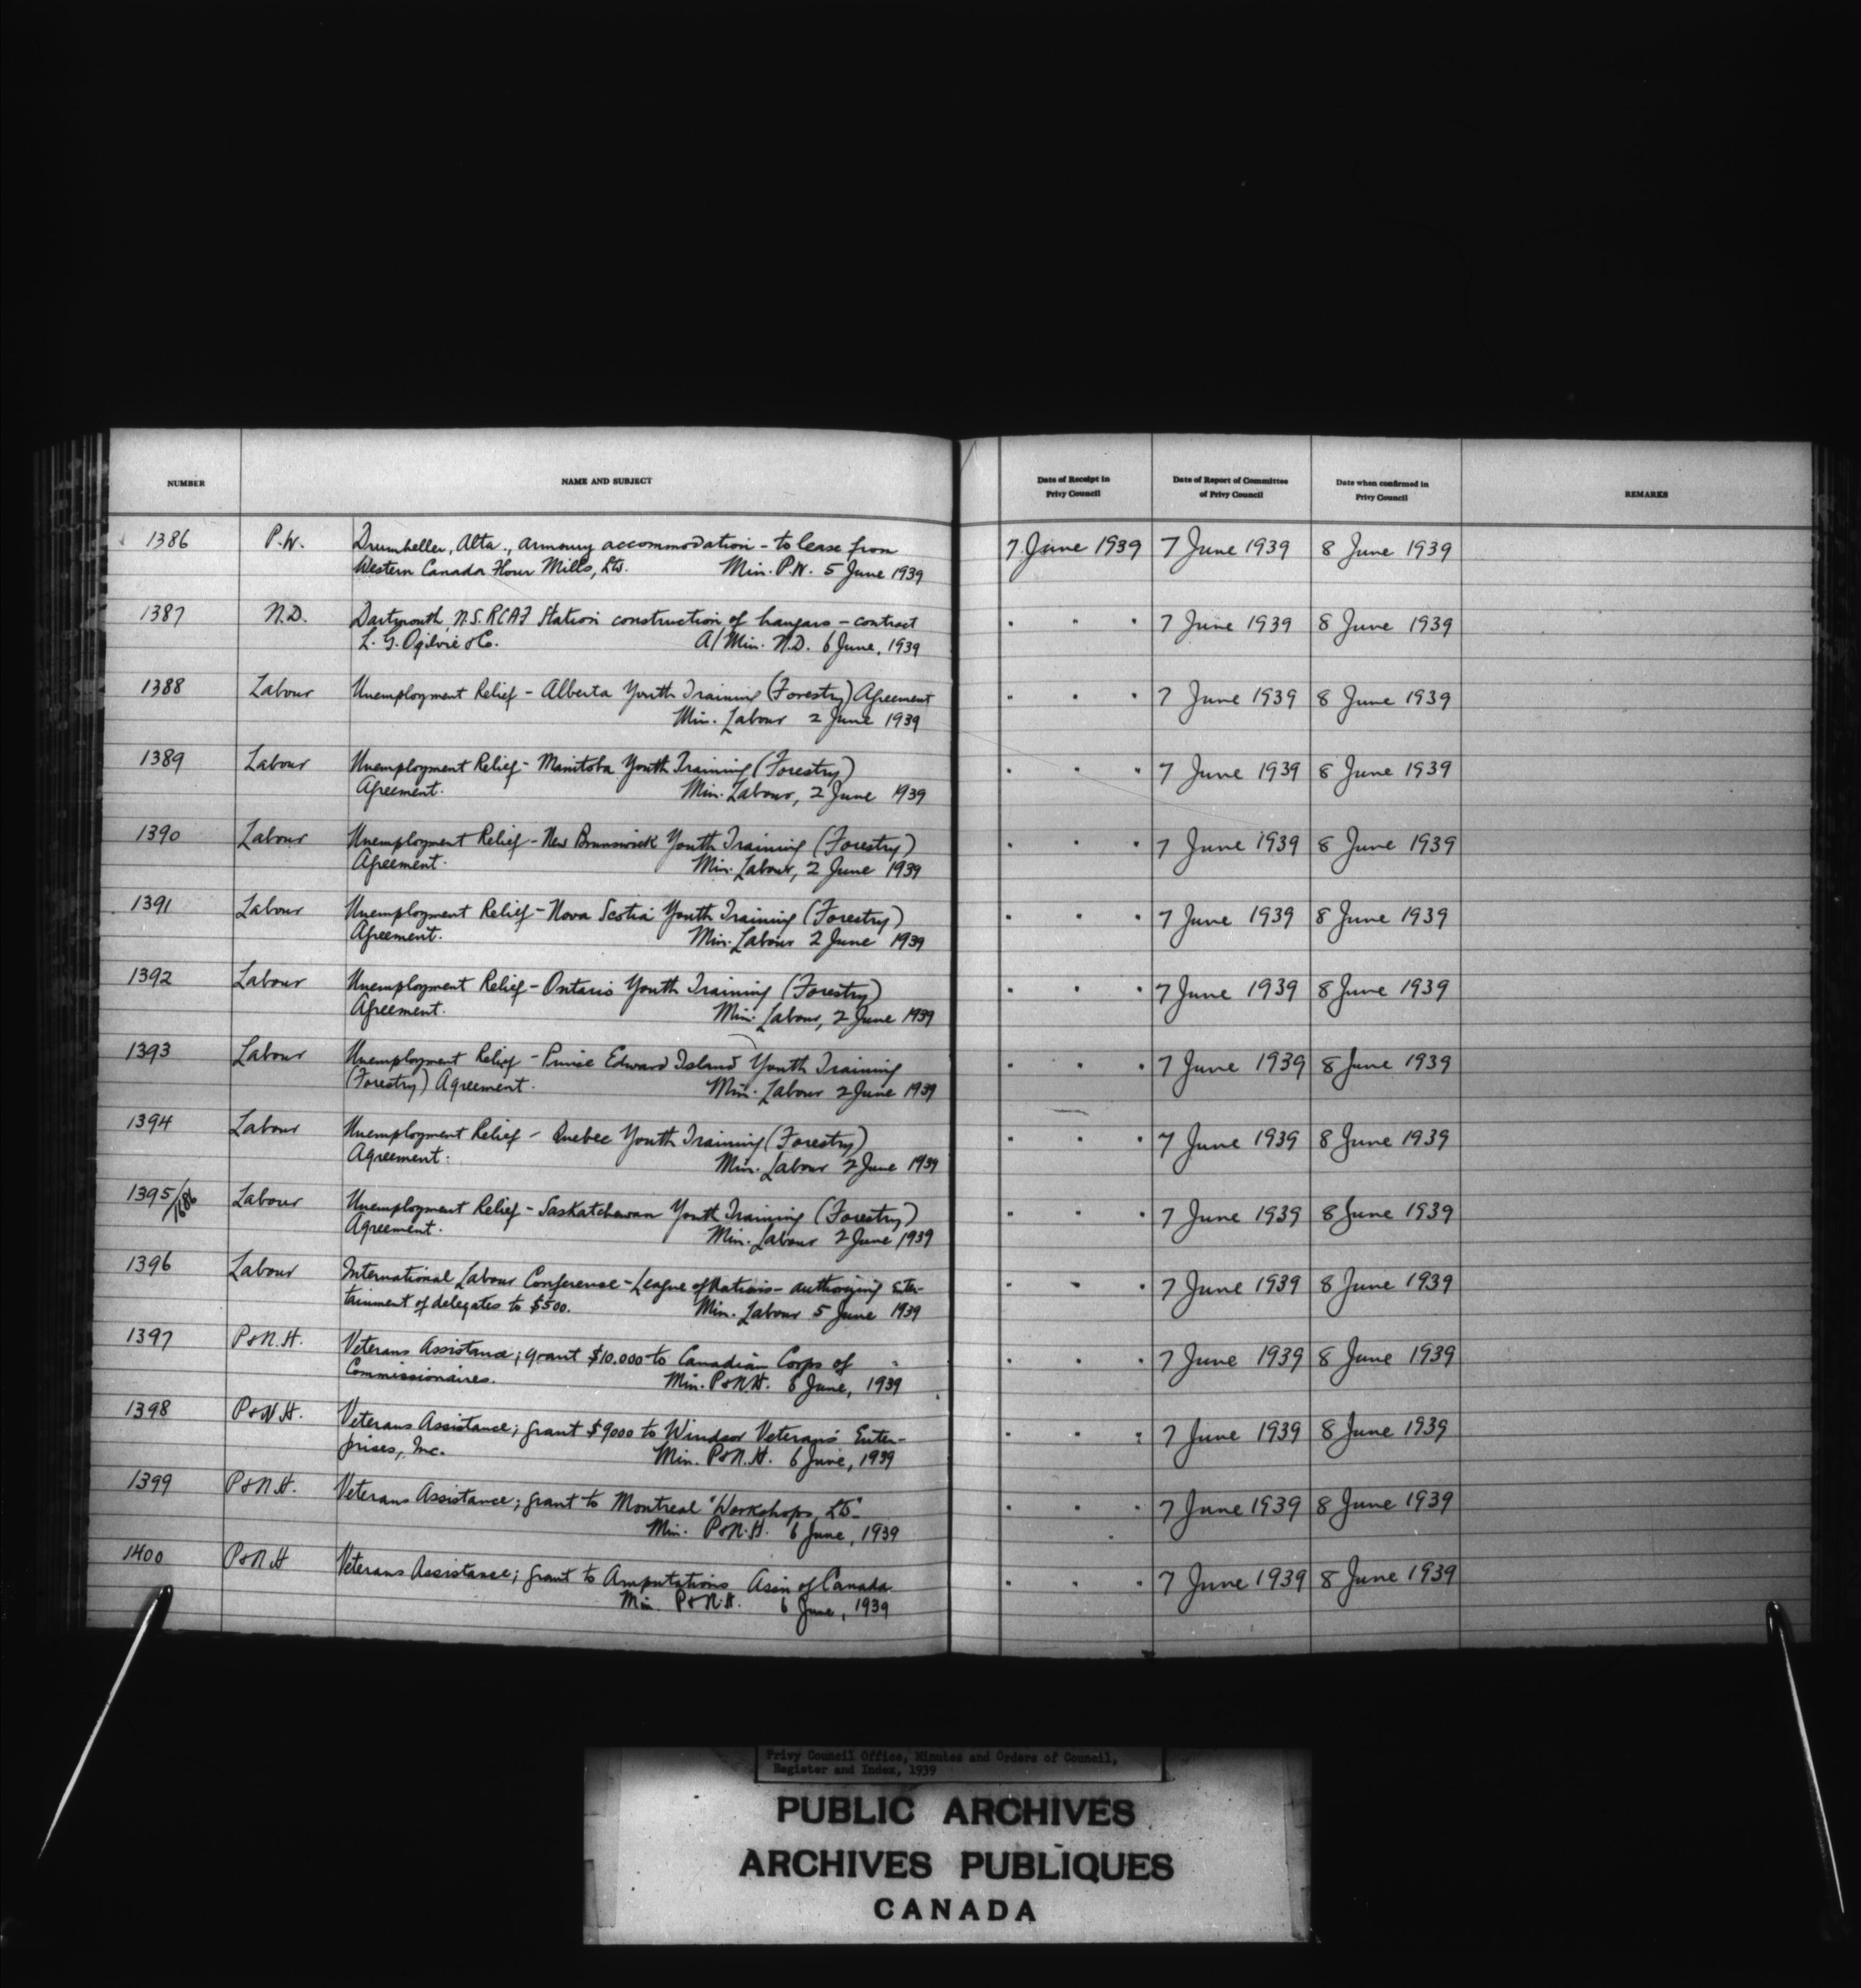 NUMBER NAME AND SUBJECT Date of Receipt in Privy Council Date of Report of Committee of Privy Council Date when confirmed in Privy Council REMARKS
1386 P.W. Drumheller, Alta., armoury accommodation - to lease from 7 June 1939 7 June 1939 8 June 1939
Western Canada Flour Mills, Ltd. Min. P.W. 5 June 1939
1387 N.D. Dartmouth N.S. RCAF Station construction of hangars - contract " " " 7 June 1939 8 June 1939
L. G. Ogilvie & Co. A/Min. N.D. 6 June, 1939
1388 Labour Unemployment Relief - Alberta Youth Training (Forestry) Agreement " " " 7 June 1939 8 June 1939
Min. Labour 2 June 1939
1389 Labour Unemployment Relief - Manitoba Youth Training (Forestry) " " " 7 June 1939 8 June 1939
Agreement. Min. Labour, 2 June 1939
1390 Labour Unemployment Relief - New Brunswick Youth Training (Forestry) " " " 7 June 1939 8 June 1939
Agreement. Min. Labour, 2 June 1939
1391 Labour Unemployment Relief - Nova Scotia Youth Training (Forestry) " " " 7 June 1939 8 June 1939
Agreement. Min. Labour 2 June 1939
1392 Labour Unemployment Relief - Ontario Youth Training (Forestry) " " " 7 June 1939 8 June 1939
Agreement. Min. Labour, 2 June 1939
1393 Labour Unemployment Relief - Prince Edward Island Youth Training " " " 7 June 1939 8 June 1939
(Forestry) Agreement. Min. Labour 2 June 1939
1394 Labour Unemployment Relief - Quebec Youth Training (Forestry) " " " 7 June 1939 8 June 1939
Agreement. Min. Labour 2 June 1939
1395 Labour Unemployment Relief - Saskatchewan Youth Training (Forestry) " " " 7 June 1939 8 June 1939
Agreement. Min. Labour 2 June 1939
1396 Labour International Labour Conference - League of Nations - authorizing enter- " " " 7 June 1939 8 June 1939
tainment of delegates to $500. Min. Labour 5 June 1939
1397 P&N.H. Veterans Assistance; grant $10.000 to Canadian Corps of " " " 7 June 1939 8 June 1939
Commissionaires. Min. P&NH. 6 June, 1939
1398 P&N.H. Veterans Assistance; grant $9000 to Windsor Veterans' Enter- " " " 7 June 1939 8 June 1939
prises, Inc. Min. P&N.H. 6 June, 1939
1399 P&N.H. Veterans Assistance; grant to Montreal "Workshops, Ltd" " " " 7 June 1939 8 June 1939
Min. P&N.H. 6 June, 1939
1400 P&N.H Veterans Assistance; grant to Amputations Assn of Canada " " " 7 June 1939 8 June 1939
Min. P&N.H. 6 June, 1939
Privy Council Office, Minutes and Orders of Council,
Register and Index, 1939
PUBLIC ARCHIVES
ARCHIVES PUBLIQUES
CANADA